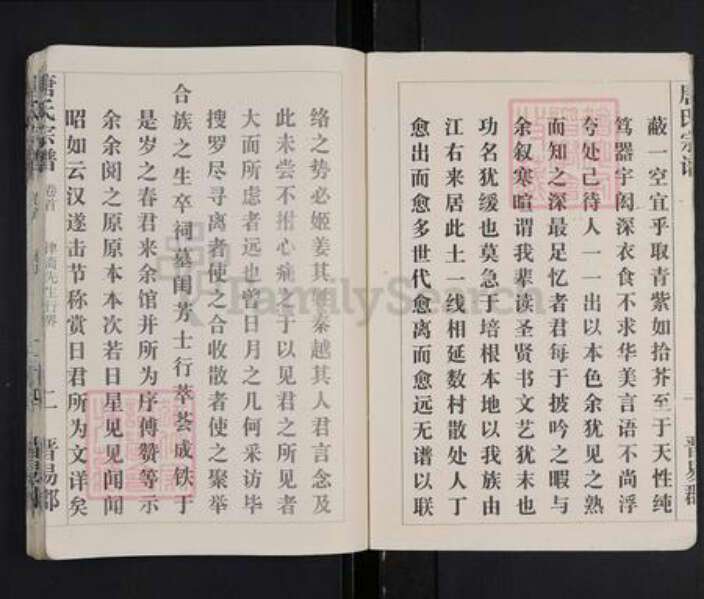 蔽一空宜乎取青紫如拾芥至于天性纯
笃器宇闳深衣食不求华美言语不尚浮
夸处己待人一一出以本色余犹见之熟
而知之深最足忆者君每于披吟之暇与
余叙寒喧谓我辈读圣贤书文艺犹末也
功名犹缓也莫急于培根本地以我族由
江右来居此土一线相延数村散处人丁
愈出而愈多世代愈离而愈远无谱以联
络之势必姬姜其 秦越其人君言念及
此未尝不拊心痛之于以见君之所见者
大而所虑者远也曾日月之几何采访毕
搜罗尽寻离者使之合收散者使之聚举
合族之生卒祠墓闺芳士行萃荟成铁于
是岁之春君来余馆并所为序传赞等示
余余阅之原原本本次若日星见见闻闻
昭如云汉遂击节称赏曰君所为文详矣
唐氏宗谱
卷首
二
晋易郡
FamilySearch